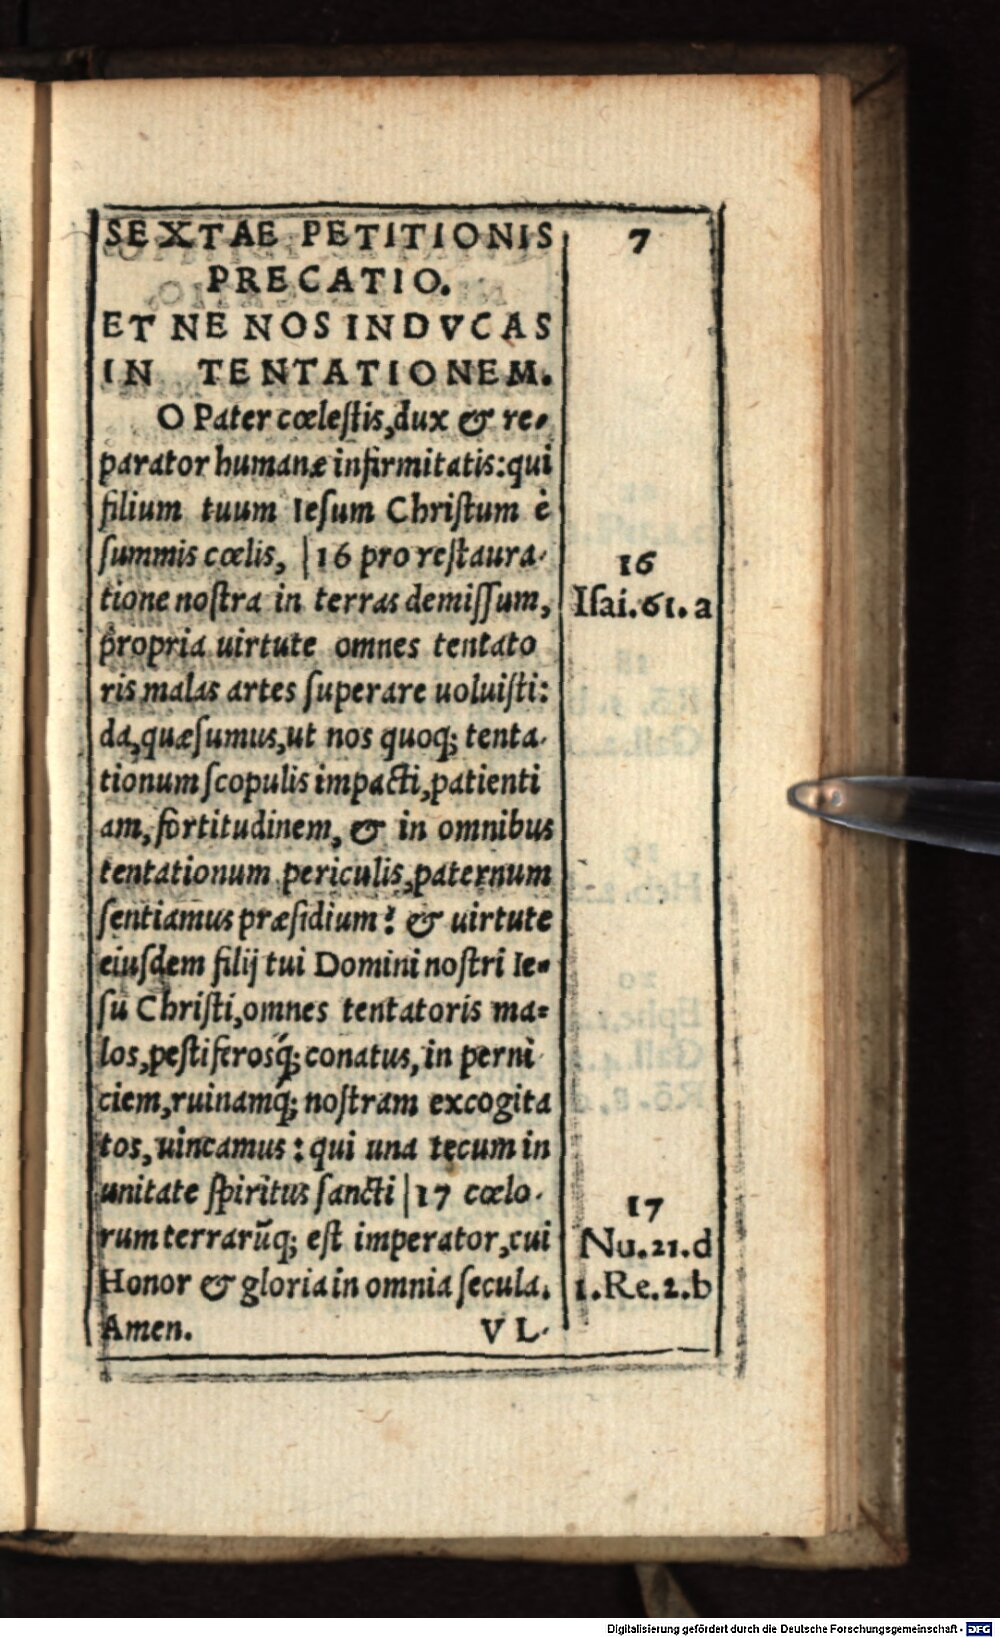 SEXTAE PETITIONIS
7
PRECATIO.
ET NE NOS INDVCAS
IN TENTATIONEM.
O Pater cœleſtis,dux & re-
parator humanæ infirmitatis:qui
filium tuum Ieſum Chriſtum è
ſummis cœlis, |16 pro reſtaura-
16
tione noſtra in terras demiſſum,
Iſai.61.a
propria uirtute omnes tentato
ris malas artes ſuperare uoluiſti:
da,quæſumus,ut nos quoq; tenta-
tionum ſcopulis impacti,patienti
am, fortitudinem, & in omnibus
tentationum periculis,paternum
ſentiamus præſidium? & uirtute
eiuſdem filij tui Domini noſtri Ie-
ſu Chriſti,omnes tentatoris ma=
los,peſtiferosq́; conatus, in perni
ciem,ruinamq́; noſtram excogita
tos, uincamus : qui una tecum in
unitate ſpiritus ſancti |17 cœlo-
17
rum terrarūq; eſt imperator,cui
Nu.21.d
Honor & gloria in omnia ſecula.
1.Re.2.b
Amen.
VL-
Digitalisierung gefördert durch die Deutsche Forschungsgemeinschaft - DFG